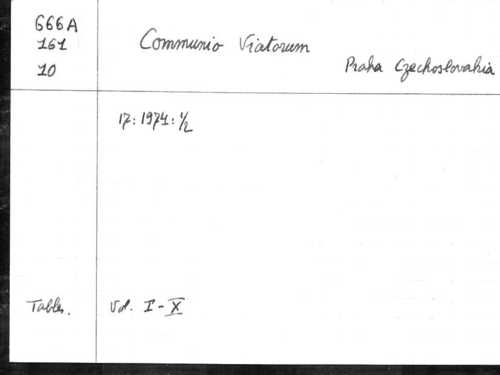 666A
161
10
Communio Viatorum
Praha Czechoslovakia
17: 1974: 1/2
Tables.
Vol. I - X